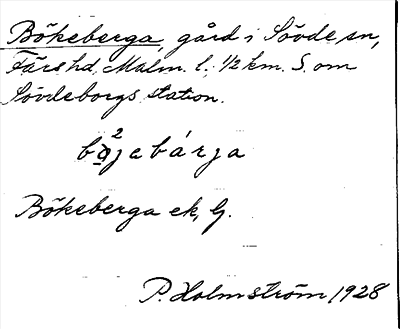 Bökeberga, gård i Sövde sn,
Färs hd, Malm. l., 1/2 km. S. om
Sövdeborgs station.
bø²jabárja
Bökeberga ek, G.
P. Holmström 1928